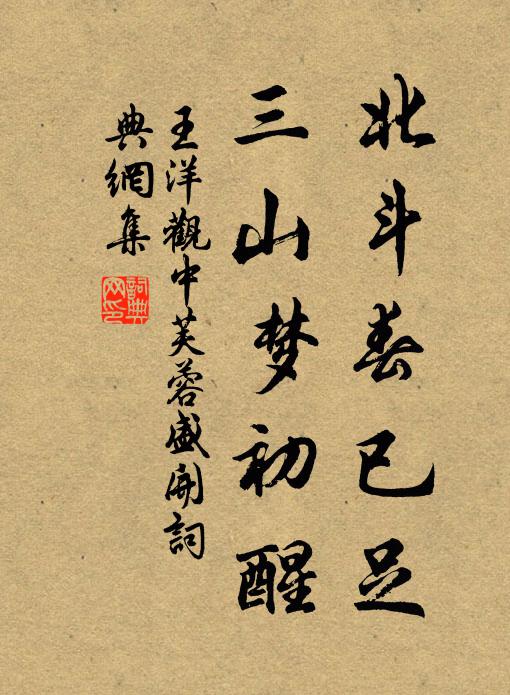 北斗春已足
三山梦初醒
王洋觀中芙蓉盛開詞
典網集
詞典
网印